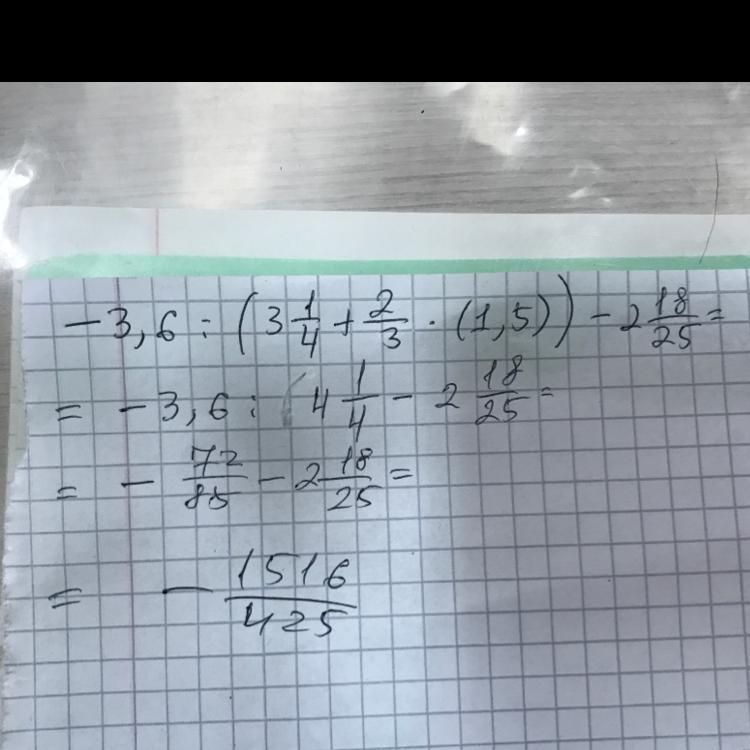 − 3,6 : (3 1/4 + 2/3 · (1,5)) − 2 18/25 =
= − 3,6 : 4 1/4 − 2 18/25 =
= − 72/85 − 2 18/25 =
= − 1516/425